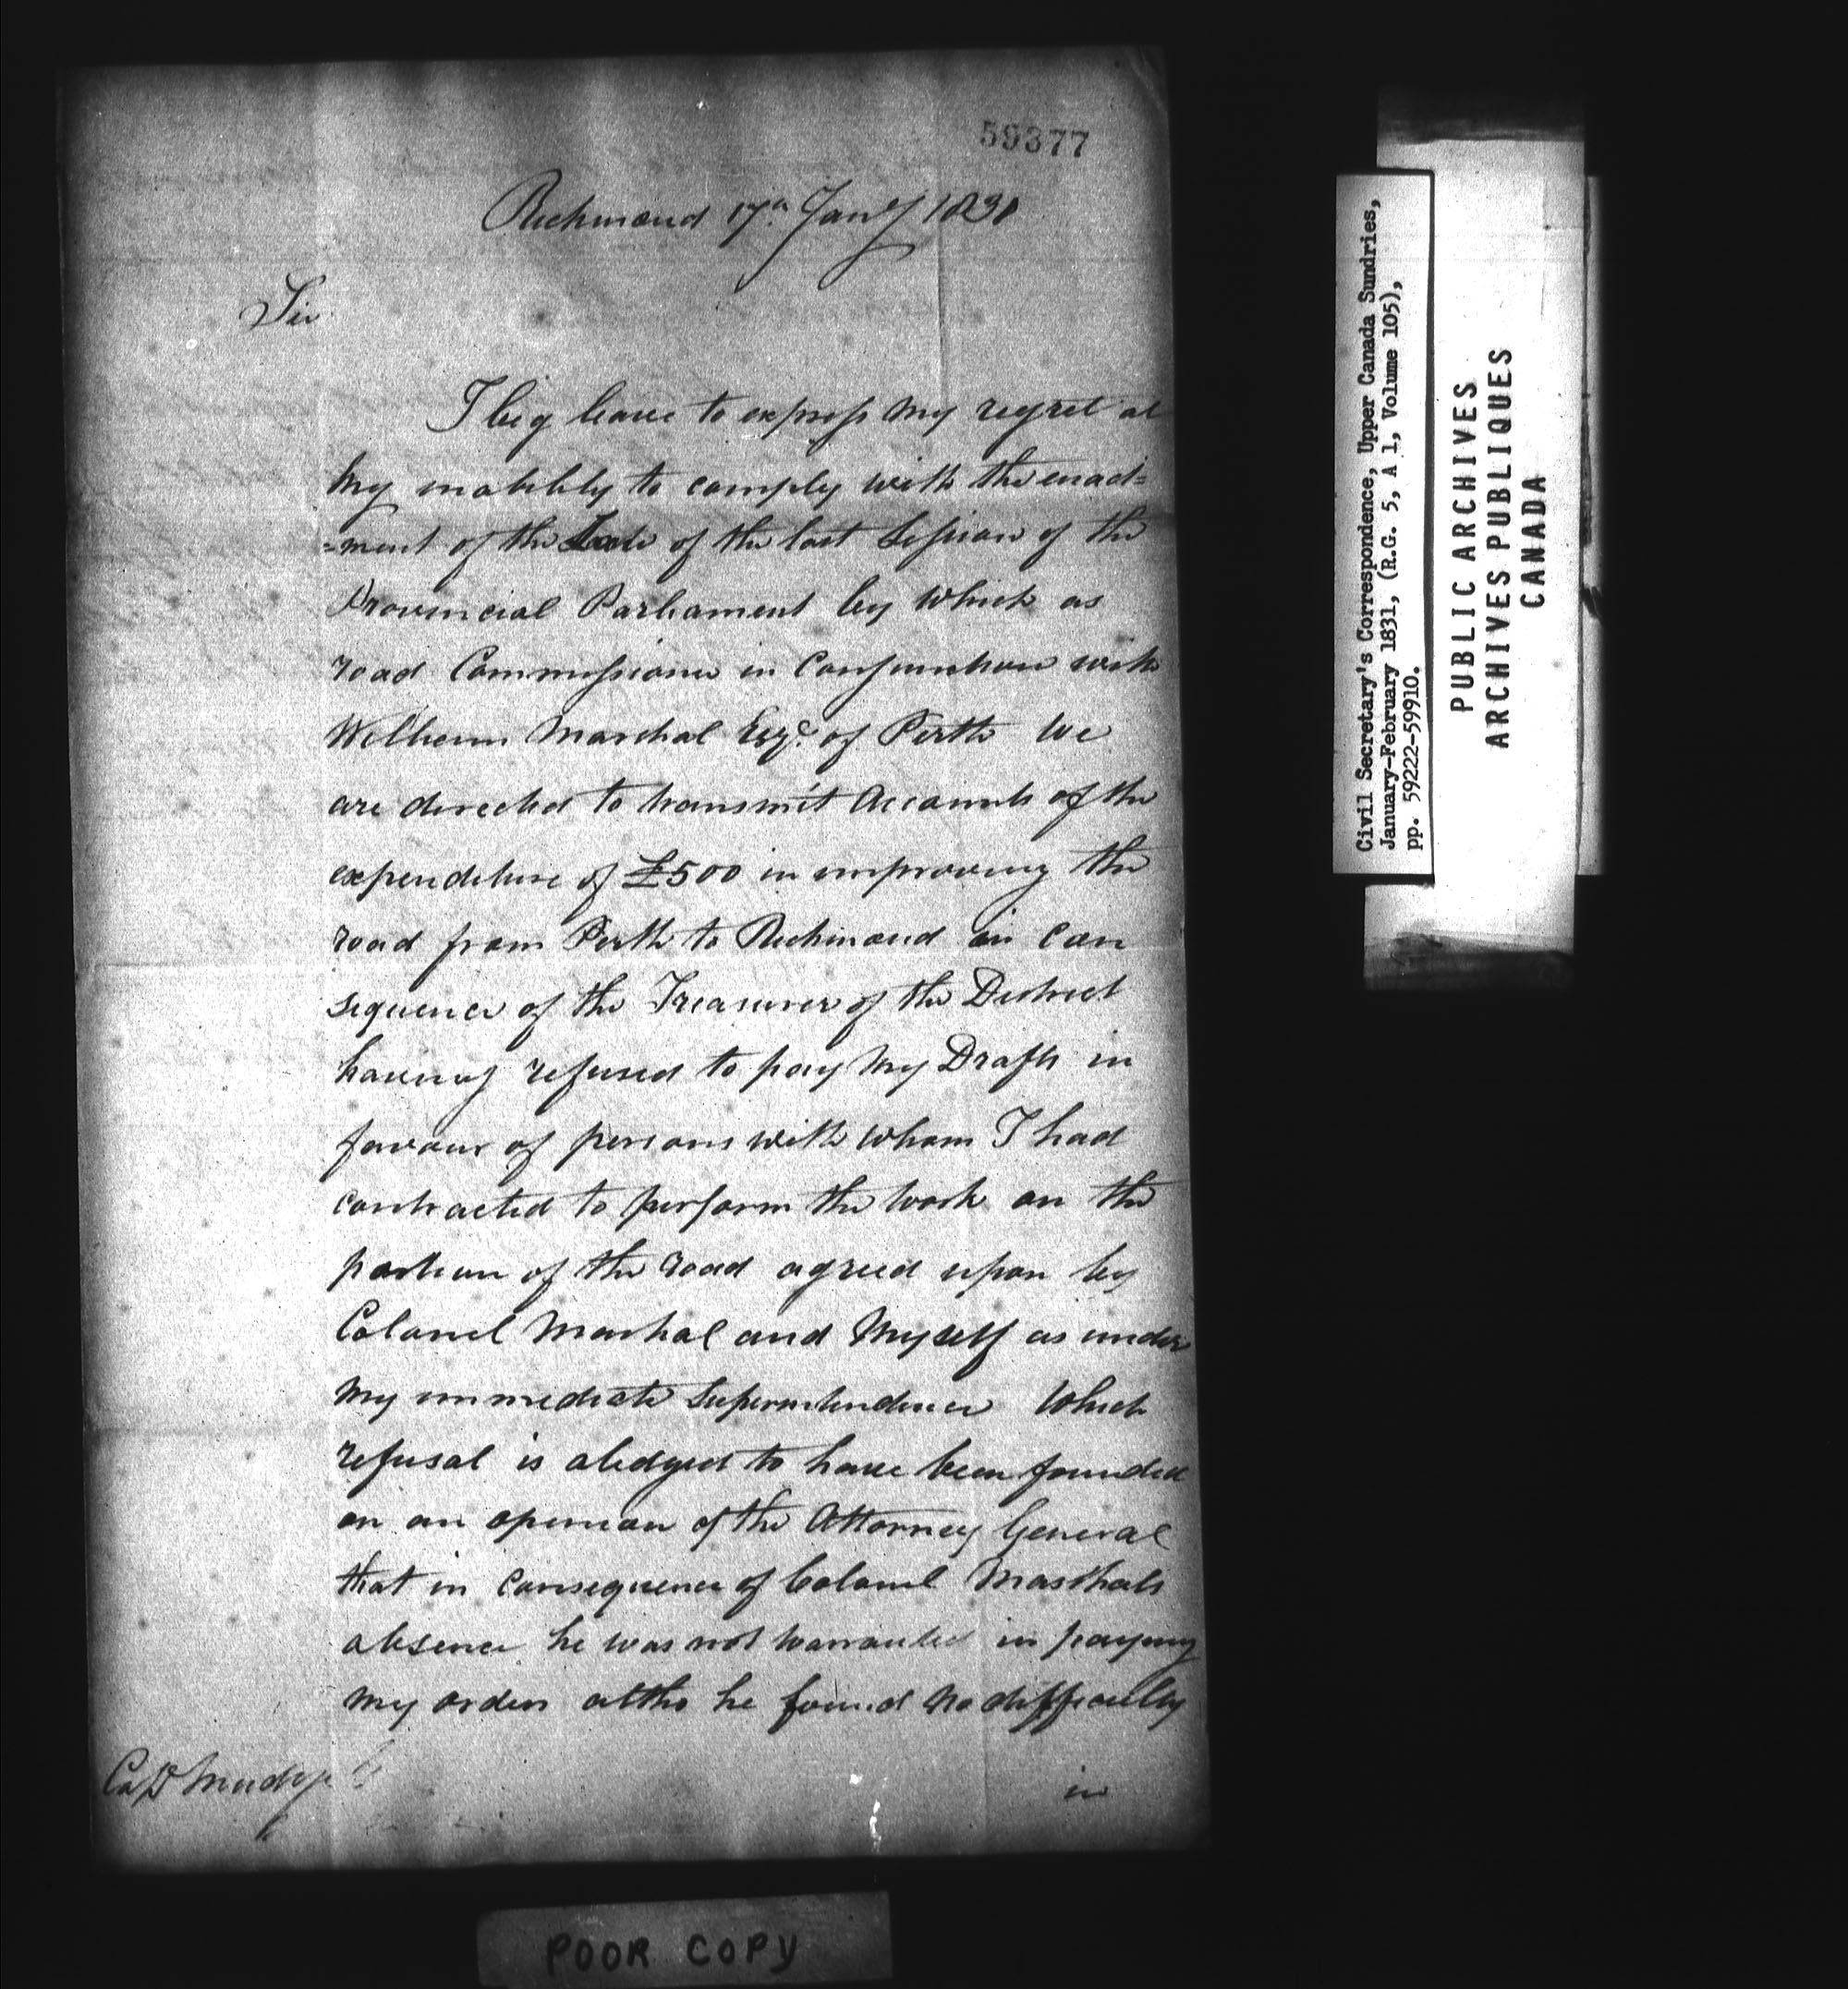 59377
Richmond 17th Jany 1831
Sir
I beg leave to express my regret at
my inability to comply with the enact=
=ment of the of the last Session of the
Provincial Parliament by which as
road Commissioner in Conjunction with
William Marshal Esqr. of Perth We
are directed to transmit Accounts of the
expenditure of £500 in improving the
road from Perth to Richmond in con
sequence of the Treasurer of the District
having refused to pay my Drafts in
favour of persons with whom I had
contracted to perform the work on the
portion of the road agreed upon by
Colonel Marshal and Myself as under
my immediate superintendence Which
refusal is aledged to have been founded
on an opinion of the Attorney General
that in consequence of Colonel Marshals
absence he was not warranted in paying
my orders altho he found no difficulty
in
Civil Secretary's Correspondence, Upper Canada Sundries,
January-February 1831, (R.G. 5, A 1, Volume 105),
pp. 59222-59910.
PUBLIC ARCHIVES
ARCHIVES PUBLIQUES
CANADA
POOR COPY